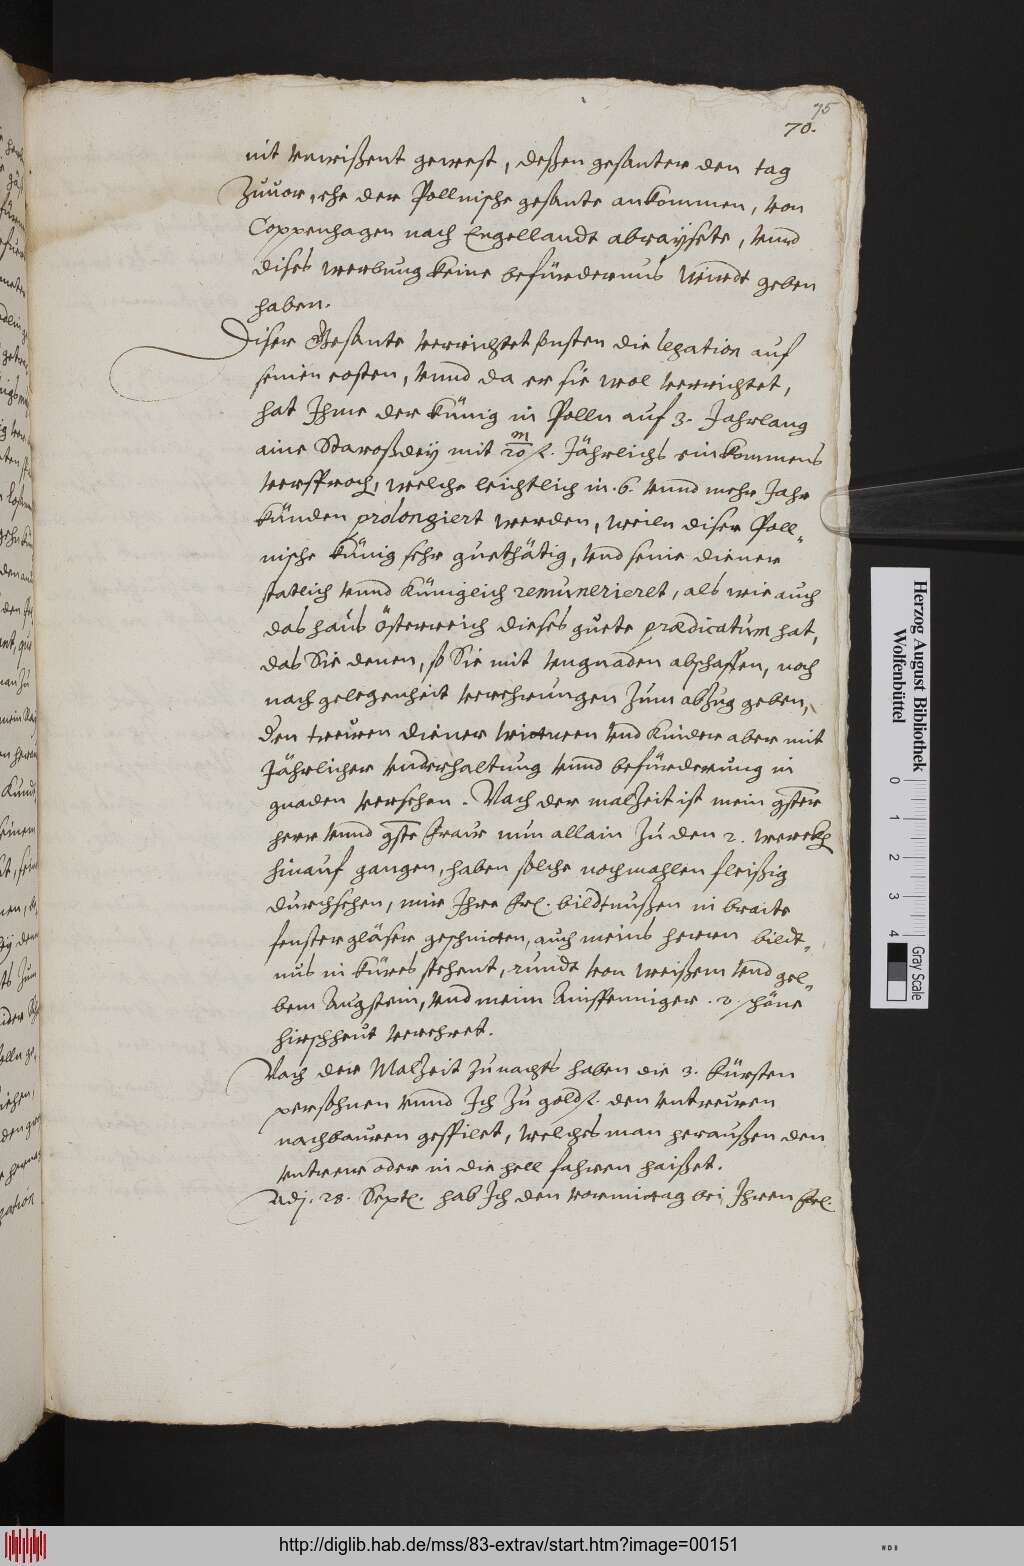 75
70.
nit unwißent gewest, deßen gesanter den tag
Zuuor, ehe der Pollnische gesante ankommen, von
Coppenhagen nach Engellandt abraysete, unnd
dises werbung keine befürdernus würdt geben
haben.
Diser Gesante verrichtet sonsten die legation auf
seinen costen, unnd da er sie wol verrichtet,
hat Ihme der Künig in Polln auf 3. Jahrlang
aine Staroßdey mit 20 m/fl. Jährlichs einkommens
versproch, welche leichtlich in .6. unnd mehr Jahr
künden prolongiert werden, weiln diser Poll-
nische Künig sehr guethätig, und seine diener
statlich unnd Künigleich remunerieret, als wie auch
das haus Österreich dieses guete prædicatum hat,
das Sie denen, so Sie mit ungnaden abschaffen, noch
nach gelegenheit verehrungen Zum abzug geben,
den trewen diener wittwen und Kinder aber mit
Jährlicher underhaltung unnd befürderung in
gnaden versehen. Nach der malzeit ist mein gster
herr unnd gste fraw nun allain Zu den 2. werckh
hinauf gangen, haben solche nochmahlen fleißig
durchsehen, mir Ihre frl. bildtnußen in braite
fenstergläser geschnitten, auch meins herrn bildt-
nus in Küres stehent, rundt von weißem und gel-
bem Augstein, und meim Ainspenniger .2. schöne
hirschheut verehret.
Nach der Malzeit zu nachts haben die 3. Fürsten
persohnen unnd Ich Zu goldfl. den untrewen
nachbauren gespilet, welches man heraußen den
untrew oder in die hell fahren haißet.
Adj. 28. Septs. hab Ich den vormittag bei Ihren frl.
Herzog August Bibliothek
Wolfenbüttel
0 1 2 3 4
Gray Scale
http://diglib.hab.de/mss/83-extrav/start.htm?image=00151